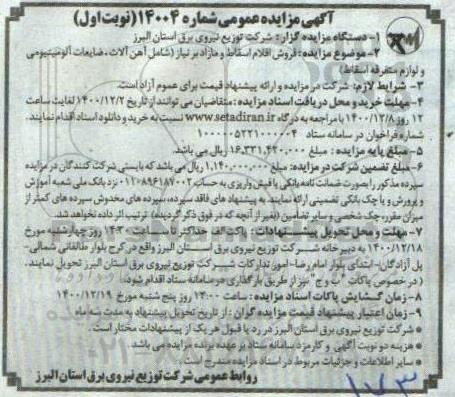 آگهی مزایده عمومی شماره ۱۴۰۰۴ (نوبت اول)
۱- دستگاه مزایده گزار: شرکت توزیع نیروی برق استان البرز
۲- موضوع مزایده: فروش اقلام اسقاط و مازاد بر نیاز (شامل آهن آلات، ضایعات آلومینیومی
و لوازم متفرقه اسقاط)
۳- شرایط لازم: شرکت در مزایده و ارائه پیشنهاد قیمت برای عموم آزاد است.
۴- مهلت خرید و محل دریافت اسناد مزایده: متقاضیان می توانند از تاریخ ۱۴۰۰/۱۲/۲ لغایت ساعت
۱۲ روز ۱۴۰۰/۱۲/۸ با مراجعه به درگاه www.setadiran.ir نسبت به خرید و دانلود اسناد اقدام نمایند.
شماره فراخوان در سامانه ستاد ۱۰۰۰۰۰۵۲۲۱۰۰۰۰۰۴
۵- مبلغ پایه مزایده: مبلغ ۱۶,۳۳۱,۴۲۰,۰۰۰ ریال می باشد.
۶- مبلغ تضمین شرکت در مزایده: مبلغ ۱,۱۴۰,۰۰۰,۰۰۰ ریال می باشد که بایستی شرکت کنندگان در مزایده
سپرده مذکور را بصورت ضمانت نامه بانکی یا فیش واریزی به حساب ۰۱۱۰۸۹۶۱۸۷۰۰۲ نزد بانک ملی شعبه آموزش
و پرورش و یا چک بانکی تضمینی ارائه نمایند. به پیشنهاد های فاقد سپرده، سپرده های مخدوش سپرده های کمتر از
میزان مقرر، چک شخصی و سایر تضامین (بغیر از آنچه که در فوق ذکر گردیده) ترتیب اثر داده نخواهد شد.
۷- مهلت و محل تحویل پیشنهادات: پاکت الف حداکثر تا ساعت ۱۴:۳۰ روز چهارشنبه مورخ
۱۴۰۰/۱۲/۱۸ به دبیرخانه شرکت توزیع نیروی برق استان البرز واقع در کرج بلوار طالقانی شمالی-
پل آزادگان- ابتدای بلوار امام رضا- امور تدارکات شرکت توزیع نیروی برق استان البرز تحویل نمایند.
(در خصوص پاکات "ب و ج" نیز از طریق بارگذاری در سامانه ستاد اقدام شود)
۸- زمان گشایش پاکات اسناد مزایده: ساعت ۱۳:۰۰ روز پنج شنبه مورخ ۱۴۰۰/۱۲/۱۹
۹- زمان اعتبار پیشنهاد قیمت مزایده گران: از تاریخ تحویل پیشنهاد به مدت سه ماه
* شرکت توزیع نیروی برق استان البرز در رد یا قبول هر یک از پیشنهادات مختار است.
* هزینه دو نوبت آگهی و کارمزد سامانه ستاد بر عهده برنده مزایده می باشد.
* سایر اطلاعات و جزئیات مربوط در اسناد مزایده مندرج است.
روابط عمومی شرکت توزیع نیروی برق استان البرز
۱۷۳